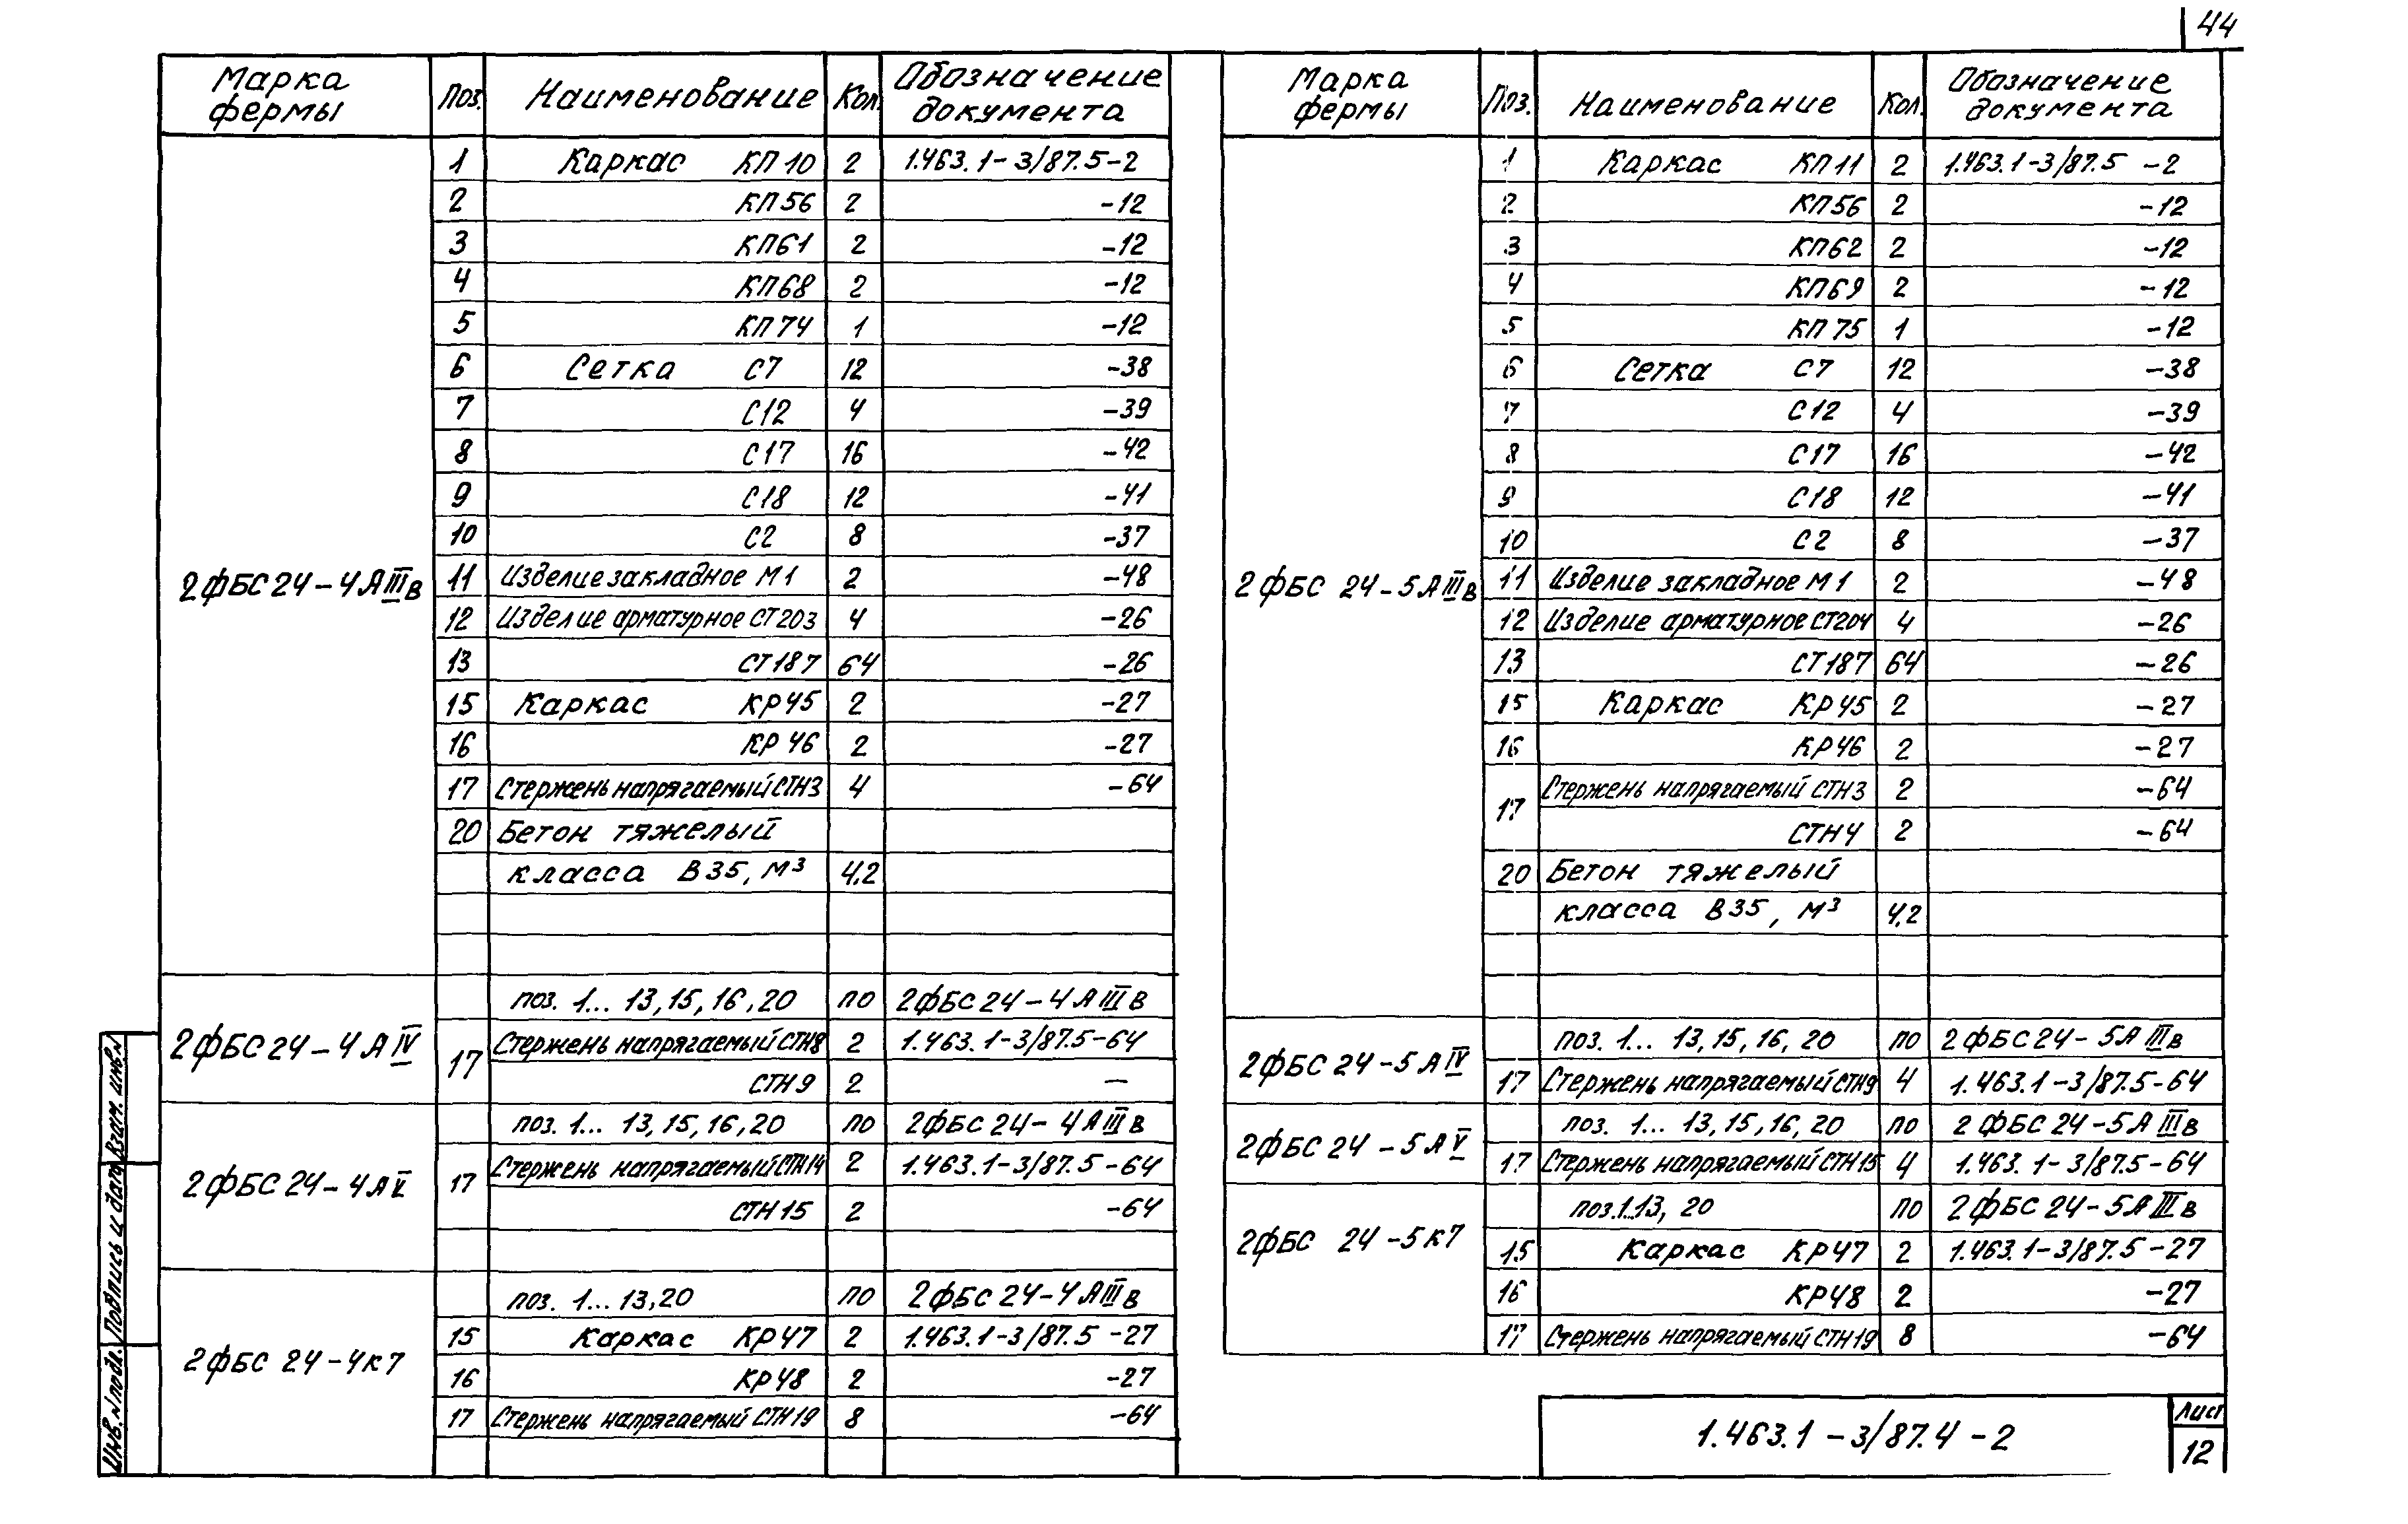 44
Марка фермы Поз. Наименование Кол. Обозначение документа
1 Каркас КП10 2 1.463.1-3/87.5-2
2 КП56 2 -12
3 КП61 2 -12
4 КП68 2 -12
5 КП74 1 -12
6 Сетка С7 12 -38
7 С12 4 -39
8 С17 16 -42
9 С18 12 -41
10 С2 8 -37
2ФБС24-4АIIIв 11 Изделие закладное М1 2 -48
12 Изделие арматурное СТ203 4 -26
13 СТ187 64 -26
15 Каркас КР45 2 -27
16 КР46 2 -27
17 Стержень напрягаемый СТН3 4 -64
20 Бетон тяжелый
класса В35, м³ 4,2
поз. 1... 13,15,16,20 по 2ФБС24-4АIIIв
2ФБС24-4АIV 17 Стержень напрягаемый СТН8 2 1.463.1-3/87.5-64
СТН9 2 —
поз. 1... 13,15,16,20 по 2ФБС24-4АIIIв
2ФБС24-4АV 17 Стержень напрягаемый СТН14 2 1.463.1-3/87.5-64
СТН15 2 -64
поз. 1...13,20 по 2ФБС24-4АIIIв
2ФБС 24-4К7 15 Каркас КР47 2 1.463.1-3/87.5-27
16 КР48 2 -27
17 Стержень напрягаемый СТН19 8 -64
Марка фермы Поз. Наименование Кол. Обозначение документа
1 Каркас КП11 2 1.463.1-3/87.5-2
2 КП56 2 -12
3 КП62 2 -12
4 КП69 2 -12
5 КП75 1 -12
6 Сетка С7 12 -38
7 С12 4 -39
8 С17 16 -42
9 С18 12 -41
10 С2 8 -37
2ФБС 24-5АIIIв 11 Изделие закладное М1 2 -48
12 Изделие арматурное СТ204 4 -26
13 СТ187 64 -26
15 Каркас КР45 2 -27
16 КР46 2 -27
17 Стержень напрягаемый СТН3 2 -64
СТН4 2 -64
20 Бетон тяжелый
класса В35, м³ 4,2
поз. 1... 13,15,16,20 по 2ФБС24-5АIIIв
2ФБС 24-5АIV 17 Стержень напрягаемый СТН9 4 1.463.1-3/87.5-64
поз. 1... 13,15,16,20 по 2ФБС 24-5АIIIв
2ФБС 24-5АV 17 Стержень напрягаемый СТН15 4 1.463.1-3/87.5-64
поз.1..13, 20 по 2ФБС 24-5АIIIв
2ФБС 24-5К7 15 Каркас КР47 2 1.463.1-3/87.5-27
16 КР48 2 -27
17 Стержень напрягаемый СТН19 8 -64
1.463.1-3/87.4-2
Лист
12
Инв.№подл.
Подпись и дата
Взам. инв.№